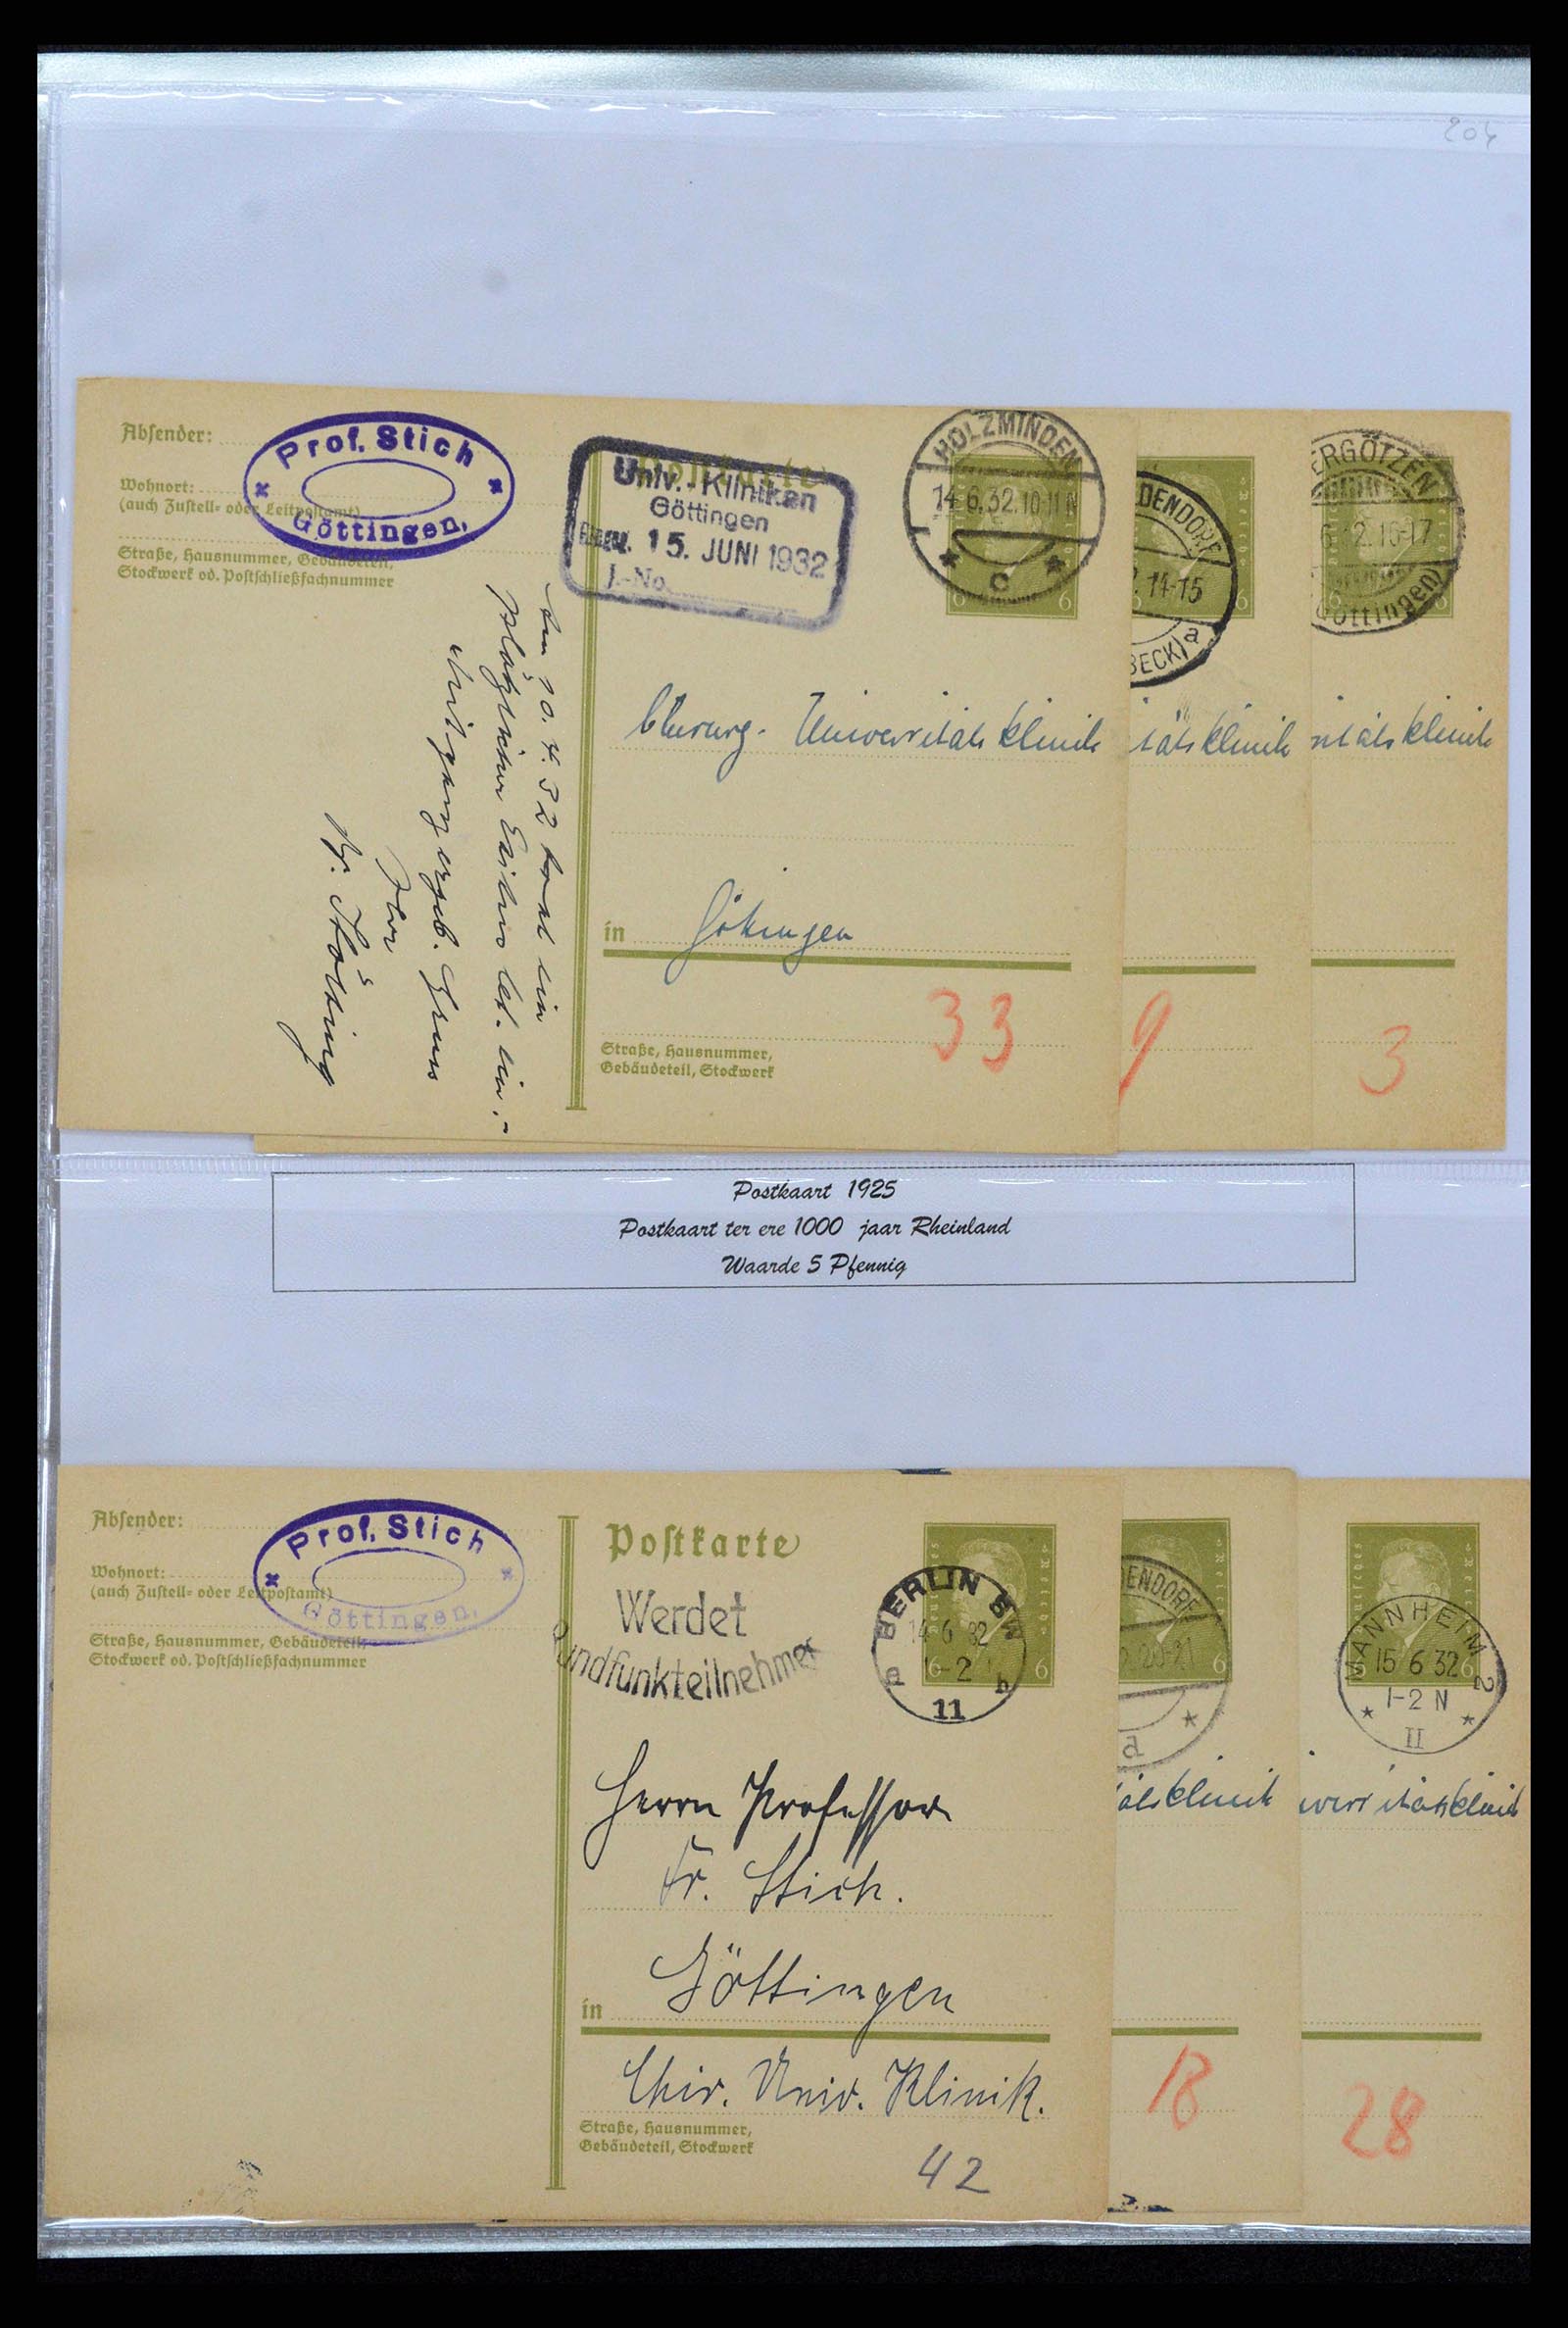 204
Absender:
Prof. Stich
Göttingen.
Wohnort:
(auch Zustell- oder Leitpostamt)
Straße, Hausnummer, Gebäudeteil,
Stockwerk od. Postschließfachnummer
Postkarte
Univ.-Kliniken
Göttingen
15. JUNI 1932
J.-No.
HOLZMINDEN
14.6.32.10-11 N
c
6 6
DENDORF
14-15
BECK) a
6
ERGÖTZEN
2.16-17
Göttingen)
6
Chirurg. Universitäts klinik
itäts klinik
rsitäts klinik
in Göttingen
Am 10. 4. 32
Gruss
Ihr
33
9
3
Straße, Hausnummer,
Gebäudeteil, Stockwerk
Postkaart 1925
Postkaart ter ere 1000 jaar Rheinland
Waarde 5 Pfennig
Absender:
Prof. Stich
Göttingen.
Wohnort:
(auch Zustell- oder Leitpostamt)
Straße, Hausnummer, Gebäudeteil,
Stockwerk od. Postschließfachnummer
Postkarte
Werdet
Rundfunkteilnehmer
Deutsches Reich
BERLIN SW
14 6 32
11
6 6
DENDORF
20-21
a
6
MANNHEIM 2
15 6 32
1-2 N
II
Herrn Professor
Fr. Stich.
in Göttingen
Chir. Univ. Klinik.
ätsklinik
iversitätsklinik
18
28
Straße, Hausnummer,
Gebäudeteil, Stockwerk
42